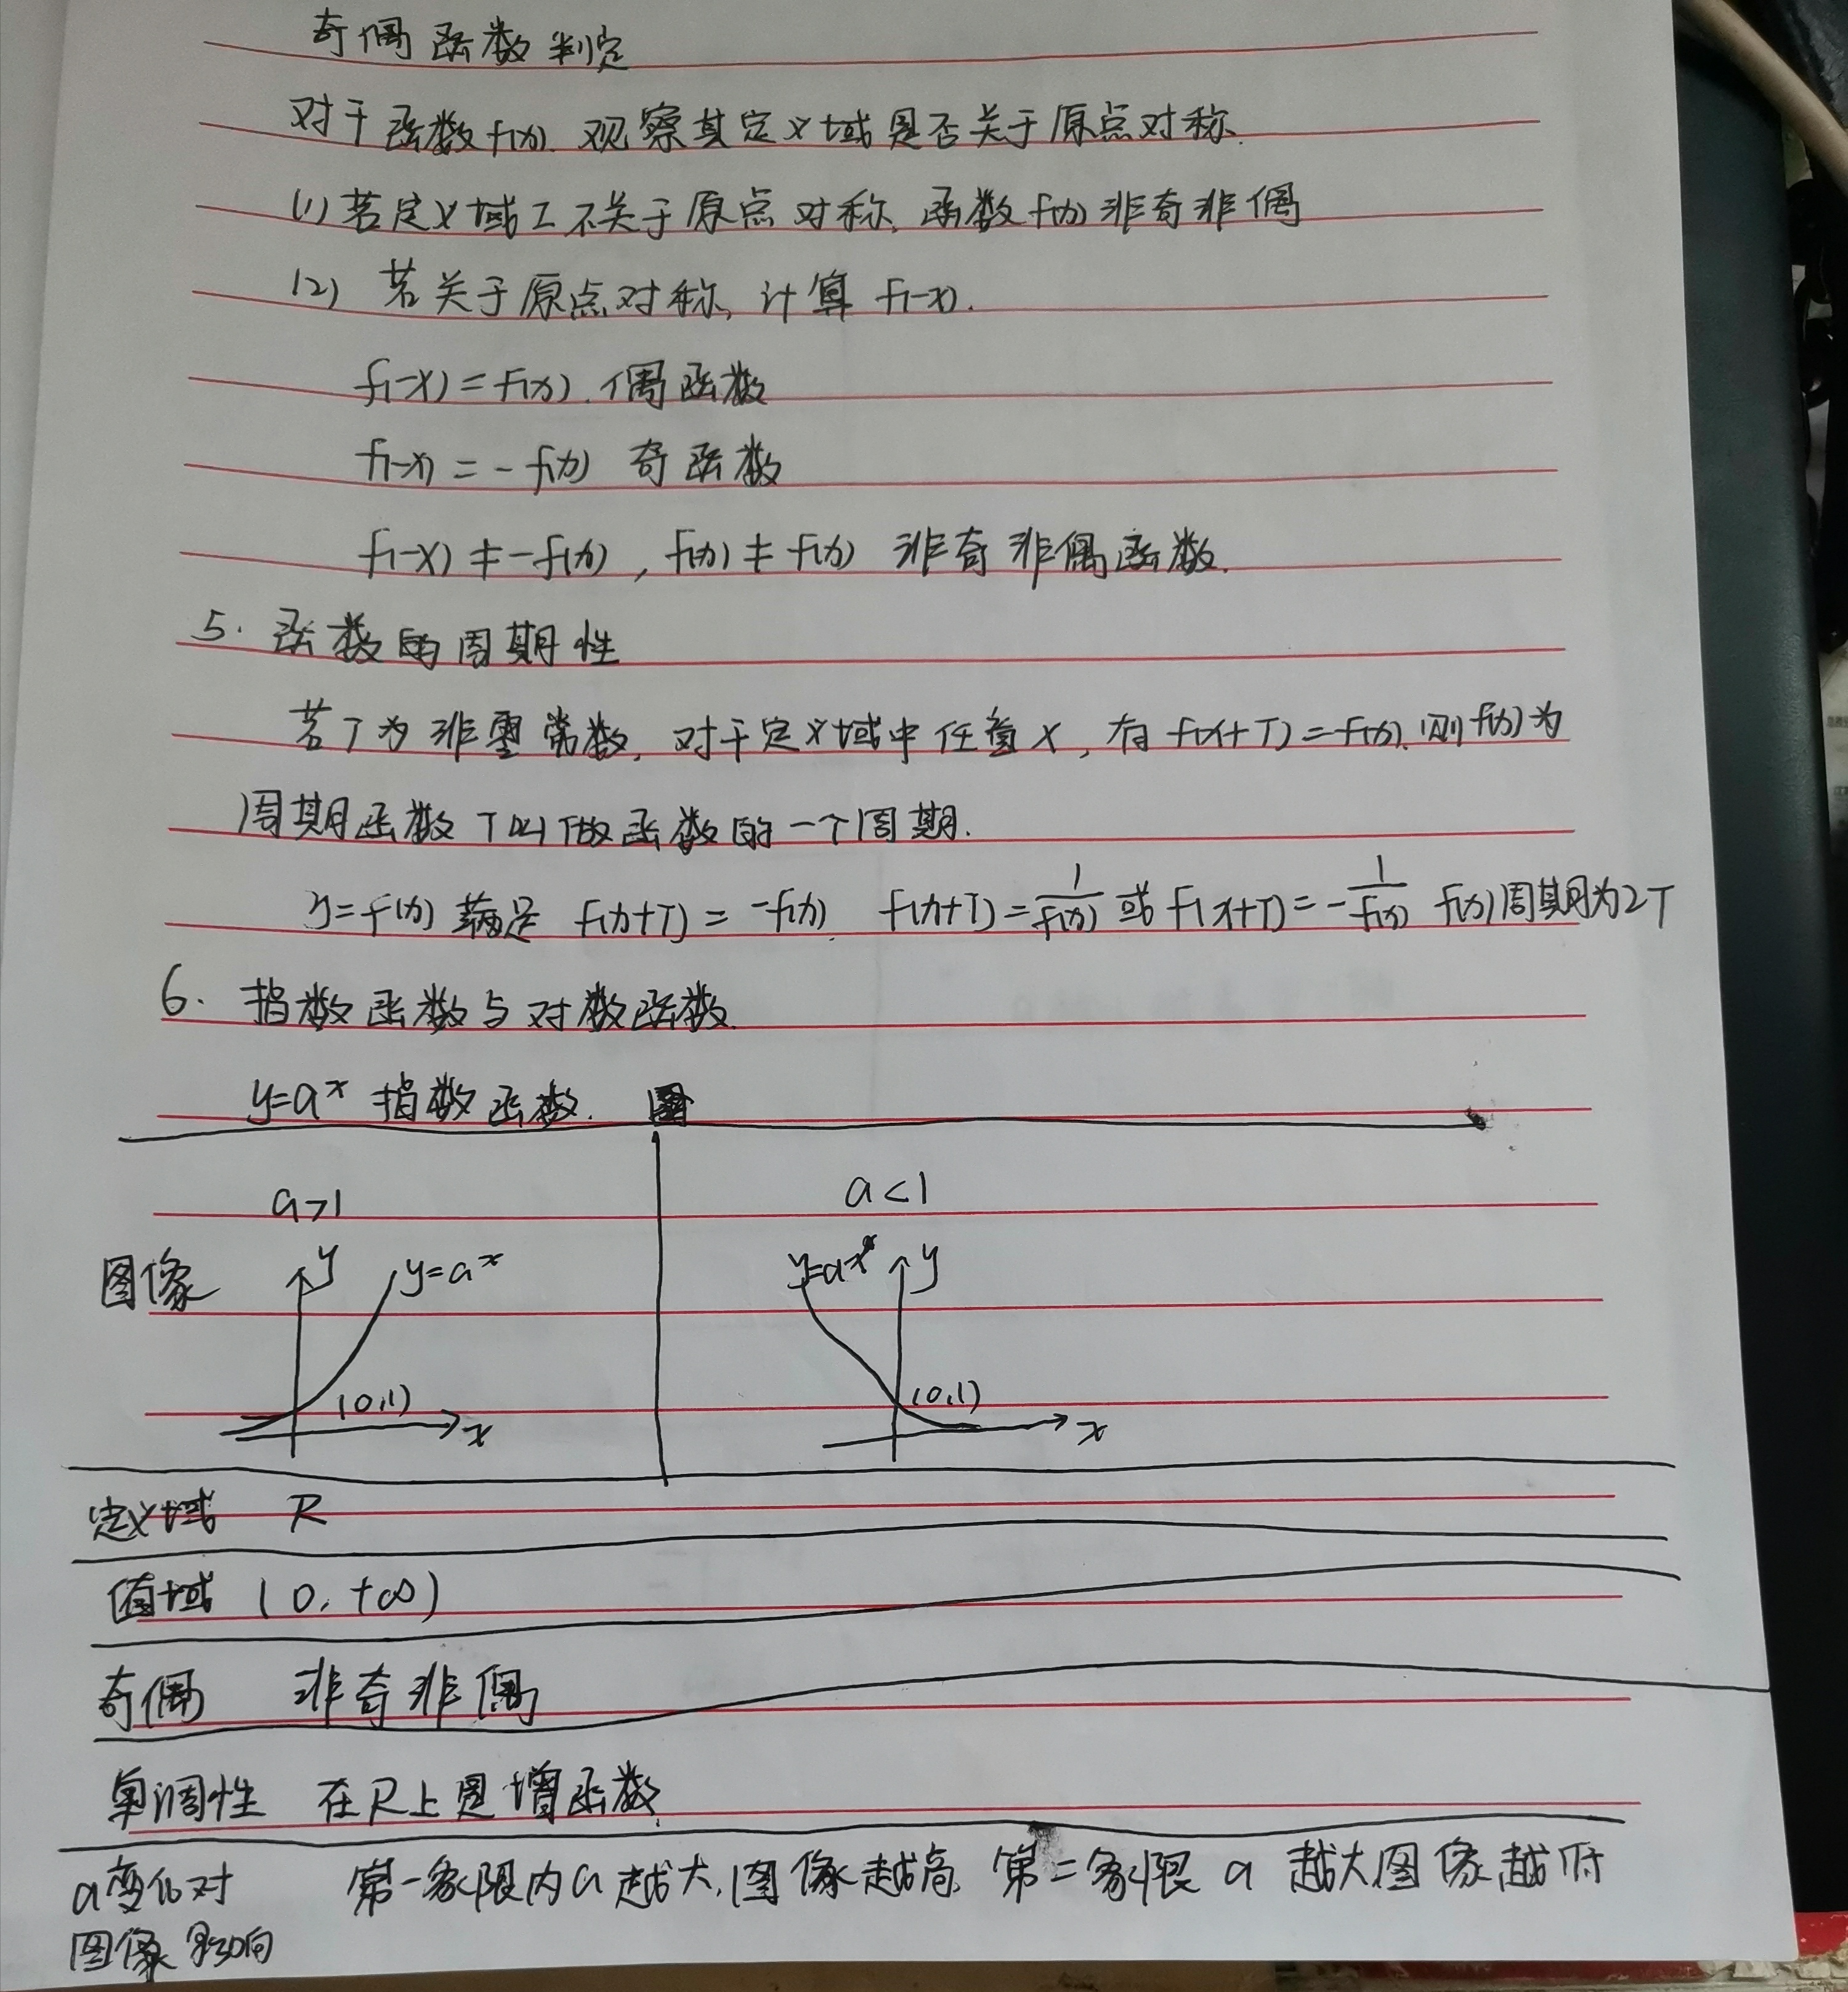 奇偶函数判定
对于函数f(x).观察其定义域是否关于原点对称.
(1)若定义域I不关于原点对称,函数f(x)非奇非偶
(2)若关于原点对称,计算f(-x).
f(-x)=f(x).偶函数
f(-x)=-f(x) 奇函数
f(-x)≠-f(x),f(x)≠f(x) 非奇非偶函数.
5.函数的周期性
若T为非零常数,对于定义域中任意x,有f(x+T)=f(x).则f(x)为
周期函数T叫做函数的一个周期.
y=f(x)满足 f(x+T)=-f(x). f(x+T)=1/f(x) 或 f(x+T)=-1/f(x) f(x)周期为2T
6.指数函数与对数函数.
y=a^x 指数函数.
a>1 a<1
图像 y y=a^x y=a^x y
(0,1) x (0,1) x
定义域 R
值域 (0,+∞)
奇偶 非奇非偶
单调性 在R上是增函数.
a变化对 第一象限内a越大,图像越高,第二象限 a 越大图像越
图像影响